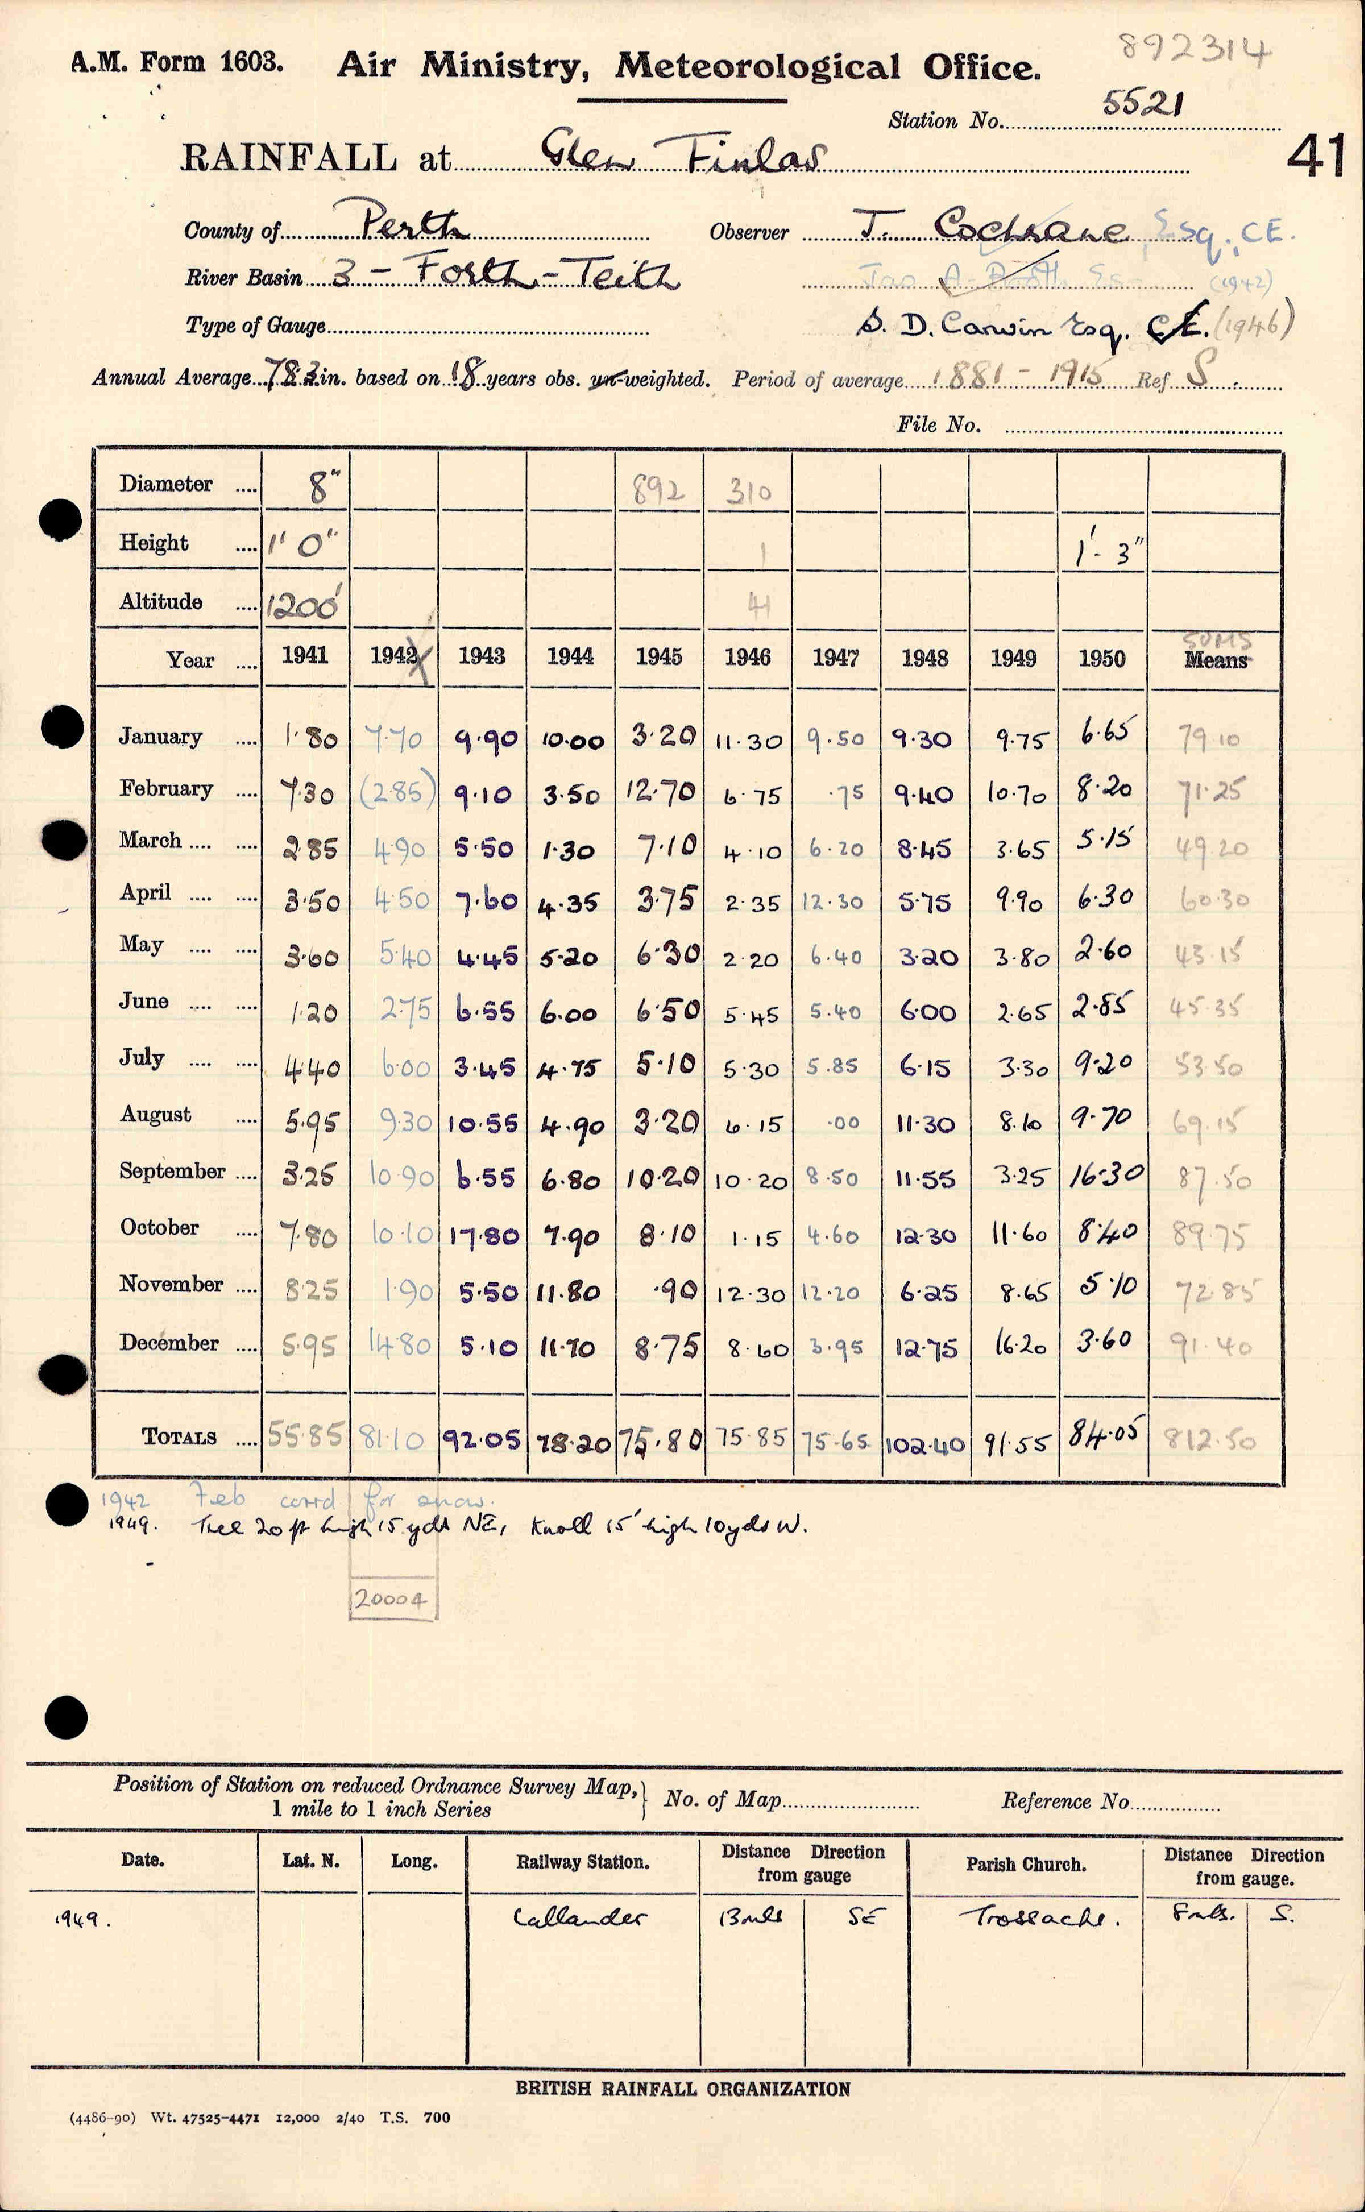 892314
A.M. Form 1603. Air Ministry, Meteorological Office.
Station No. 5521
RAINFALL at Glen Finlas
41
County of Perth Observer J. Cochrane Esq., C.E.
River Basin 3 - Forth - Teith (1942)
Type of Gauge S. D. Carwin Esq. C.E. (1946)
Annual Average 78.3 in. based on 18 years obs. un-weighted. Period of average 1881 - 1915 Ref S.
File No.
Diameter .... 8" 892 310
Height .... 1' 0" 1 1'-3"
Altitude .... 1200' 41
SUMS
Year .... 1941 1942X 1943 1944 1945 1946 1947 1948 1949 1950 Means
January .... 1.80 7.70 9.90 10.00 3.20 11.30 9.50 9.30 9.75 6.65 79.10
February .... 7.30 (2.85) 9.10 3.50 12.70 6.75 .75 9.40 10.70 8.20 71.25
March .... .... 2.85 4.90 5.50 1.30 7.10 4.10 6.20 8.45 3.65 5.15 49.20
April .... .... 3.50 4.50 7.60 4.35 3.75 2.35 12.30 5.75 9.90 6.30 60.30
May .... .... 3.60 5.40 4.45 5.20 6.30 2.20 6.40 3.20 3.80 2.60 43.15
June .... .... 1.20 2.75 6.55 6.00 6.50 5.45 5.40 6.00 2.65 2.85 45.35
July .... .... 4.40 6.00 3.45 4.75 5.10 5.30 5.85 6.15 3.30 9.20 53.50
August .... 5.95 9.30 10.55 4.90 3.20 6.15 .00 11.30 8.10 9.70 69.15
September .... 3.25 10.90 6.55 6.80 10.20 10.20 8.50 11.55 3.25 16.30 87.50
October .... 7.80 10.10 17.80 7.90 8.10 1.15 4.60 12.30 11.60 8.40 89.75
November .... 8.25 1.90 5.50 11.80 .90 12.30 12.20 6.25 8.65 5.10 72.85
December .... 5.95 14.80 5.10 11.70 8.75 8.60 3.95 12.75 16.20 3.60 91.40
TOTALS .... 55.85 81.10 92.05 78.20 75.80 75.85 75.65 102.40 91.55 84.05 812.50
1942 Feb corrd for snow.
1949. Tree 20 ft high 15 yds NE, Knoll 15' high 10yds W.
20004
Position of Station on reduced Ordnance Survey Map,} No. of Map Reference No.
1 mile to 1 inch Series
Date. Lat. N. Long. Railway Station. Distance Direction from gauge Parish Church. Distance Direction from gauge.
1949. Callander 13 mls SE Trossachs. 8 mls. S.
BRITISH RAINFALL ORGANIZATION
(4486-90) Wt. 47525-4471 12,000 2/40 T.S. 700